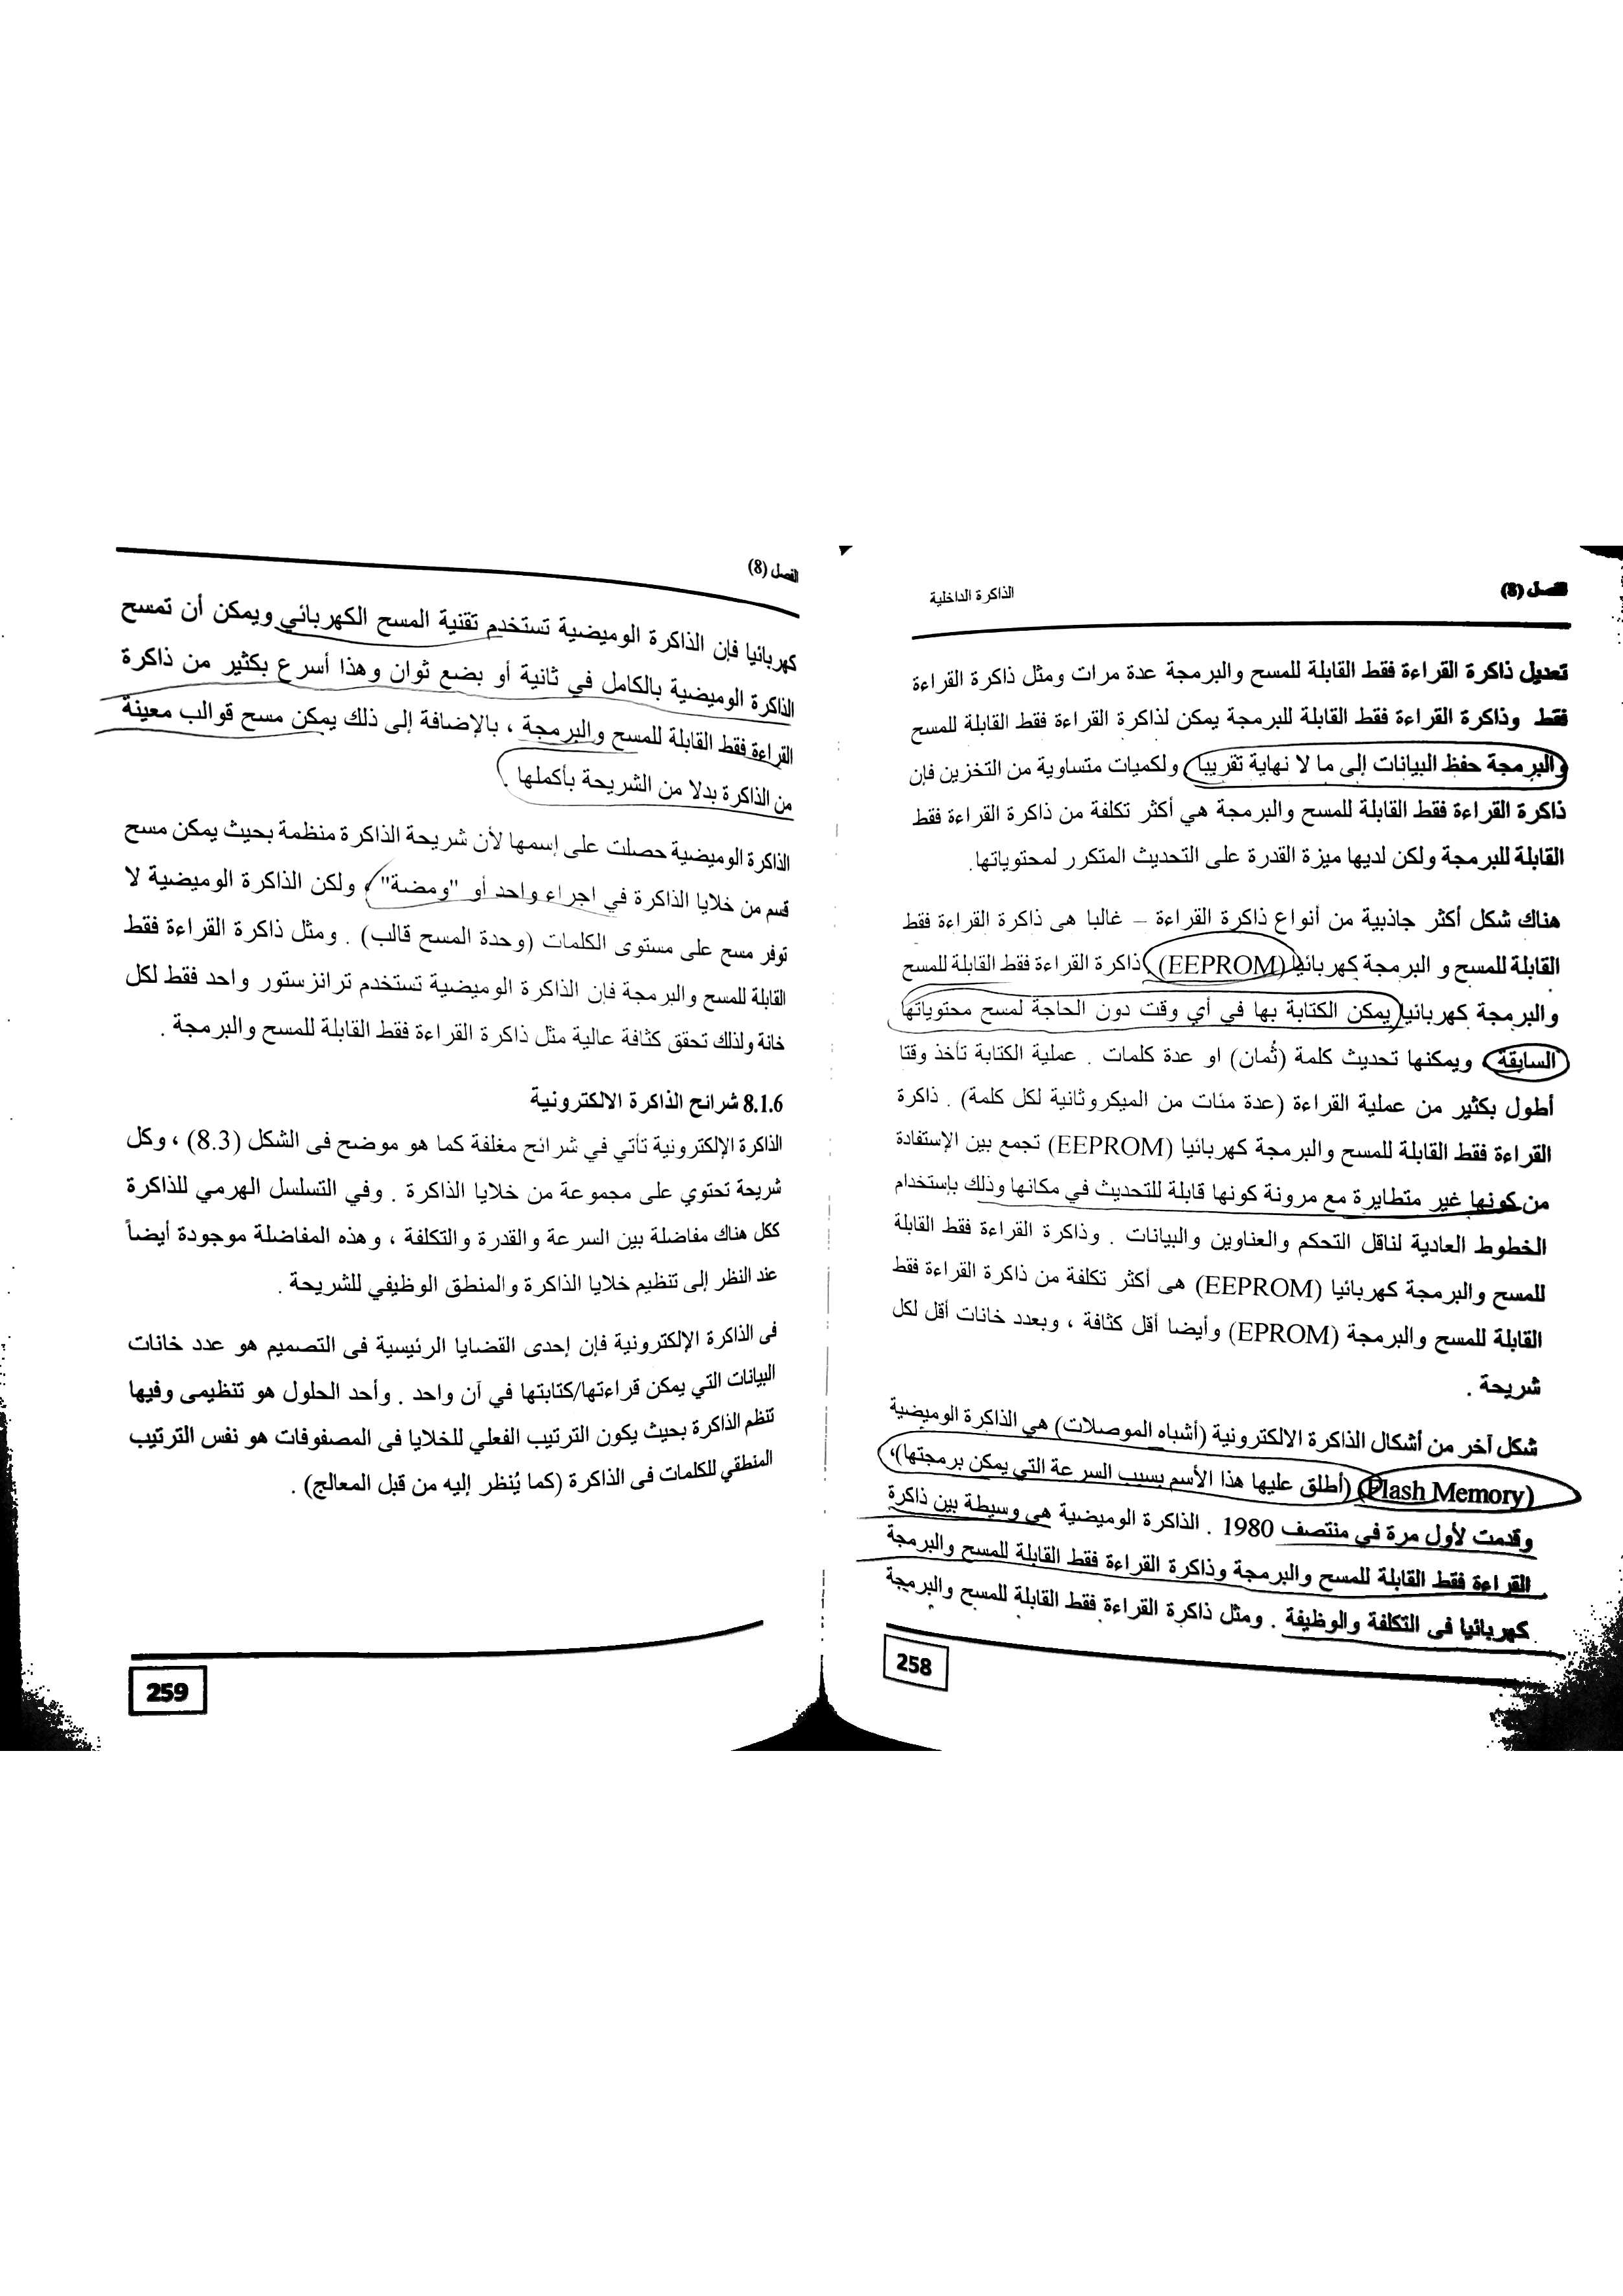 الفصل (8)
الذاكرة الداخلية
تعديل ذاكرة القراءة فقط القابلة للمسح والبرمجة عدة مرات ومثل ذاكرة القراءة
فقط وذاكرة القراءة فقط القابلة للبرمجة يمكن لذاكرة القراءة فقط القابلة للمسح
والبرمجة حفظ البيانات إلى ما لا نهاية تقريبا ، ولكميات متساوية من التخزين فإن
ذاكرة القراءة فقط القابلة للمسح والبرمجة هي أكثر تكلفة من ذاكرة القراءة فقط
القابلة للبرمجة ولكن لديها ميزة القدرة على التحديث المتكرر لمحتوياتها.
هناك شكل أكثر جاذبية من أنواع ذاكرة القراءة – غالبا هى ذاكرة القراءة فقط
القابلة للمسح و البرمجة كهربائيا (EEPROM) ، ذاكرة القراءة فقط القابلة للمسح
والبرمجة كهربائيا يمكن الكتابة بها في أي وقت دون الحاجة لمسح محتوياتها
السابقة ، ويمكنها تحديث كلمة (ثُمان) او عدة كلمات . عملية الكتابة تأخذ وقتا
أطول بكثير من عملية القراءة (عدة مئات من الميكروثانية لكل كلمة) . ذاكرة
القراءة فقط القابلة للمسح والبرمجة كهربائيا (EEPROM) تجمع بين الإستفادة
من كونها غير متطايرة مع مرونة كونها قابلة للتحديث في مكانها وذلك بإستخدام
الخطوط العادية لناقل التحكم والعناوين والبيانات . وذاكرة القراءة فقط القابلة
للمسح والبرمجة كهربائيا (EEPROM) هى أكثر تكلفة من ذاكرة القراءة فقط
القابلة للمسح والبرمجة (EPROM) وأيضا أقل كثافة ، وبعدد خانات أقل لكل
شريحة .
شكل آخر من أشكال الذاكرة الالكترونية (أشباه الموصلات) هي الذاكرة الوميضية
(Flash Memory) (أطلق عليها هذا الأسم بسبب السرعة التي يمكن برمجتها)،
وقدمت لأول مرة في منتصف 1980 . الذاكرة الوميضية هي وسيطة بين ذاكرة
القراءة فقط القابلة للمسح والبرمجة وذاكرة القراءة فقط القابلة للمسح والبرمجة
كهربائيا فى التكلفة والوظيفة . ومثل ذاكرة القراءة فقط القابلة للمسح والبرمجة
258
الفصل (8)
كهربائيا فإن الذاكرة الوميضية تستخدم تقنية المسح الكهربائي ويمكن أن تمسح
الذاكرة الوميضية بالكامل في ثانية أو بضع ثوان وهذا أسرع بكثير من ذاكرة
القراءة فقط القابلة للمسح والبرمجة ، بالإضافة إلى ذلك يمكن مسح قوالب معينة
من الذاكرة بدلا من الشريحة بأكملها .
الذاكرة الوميضية حصلت على إسمها لأن شريحة الذاكرة منظمة بحيث يمكن مسح
قسم من خلايا الذاكرة في اجراء واحد أو "ومضة" ، ولكن الذاكرة الوميضية لا
توفر مسح على مستوى الكلمات (وحدة المسح قالب) . ومثل ذاكرة القراءة فقط
القابلة للمسح والبرمجة فإن الذاكرة الوميضية تستخدم ترانزستور واحد فقط لكل
خانة ولذلك تحقق كثافة عالية مثل ذاكرة القراءة فقط القابلة للمسح والبرمجة .
8.1.6 شرائح الذاكرة الالكترونية
الذاكرة الإلكترونية تأتي في شرائح مغلفة كما هو موضح فى الشكل (8.3) ، وكل
شريحة تحتوي على مجموعة من خلايا الذاكرة . وفي التسلسل الهرمي للذاكرة
ككل هناك مفاضلة بين السرعة والقدرة والتكلفة ، وهذه المفاضلة موجودة أيضاً
عند النظر إلى تنظيم خلايا الذاكرة والمنطق الوظيفي للشريحة .
فى الذاكرة الإلكترونية فإن إحدى القضايا الرئيسية فى التصميم هو عدد خانات
البيانات التي يمكن قراءتها/كتابتها في آن واحد . وأحد الحلول هو تنظيمى وفيها
تنظم الذاكرة بحيث يكون الترتيب الفعلي للخلايا فى المصفوفات هو نفس الترتيب
المنطقي للكلمات فى الذاكرة (كما يُنظر إليه من قبل المعالج) .
259